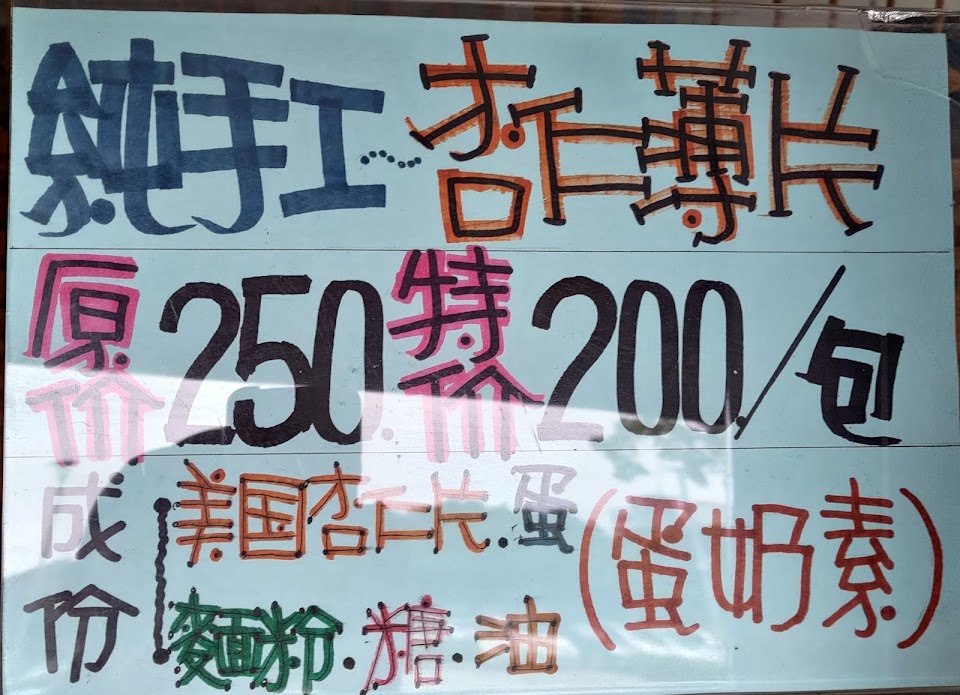 純手工....~杏仁薄片
原价250.特价200/包
成份 美国杏仁片.蛋(蛋奶素)
麵粉.糖.油